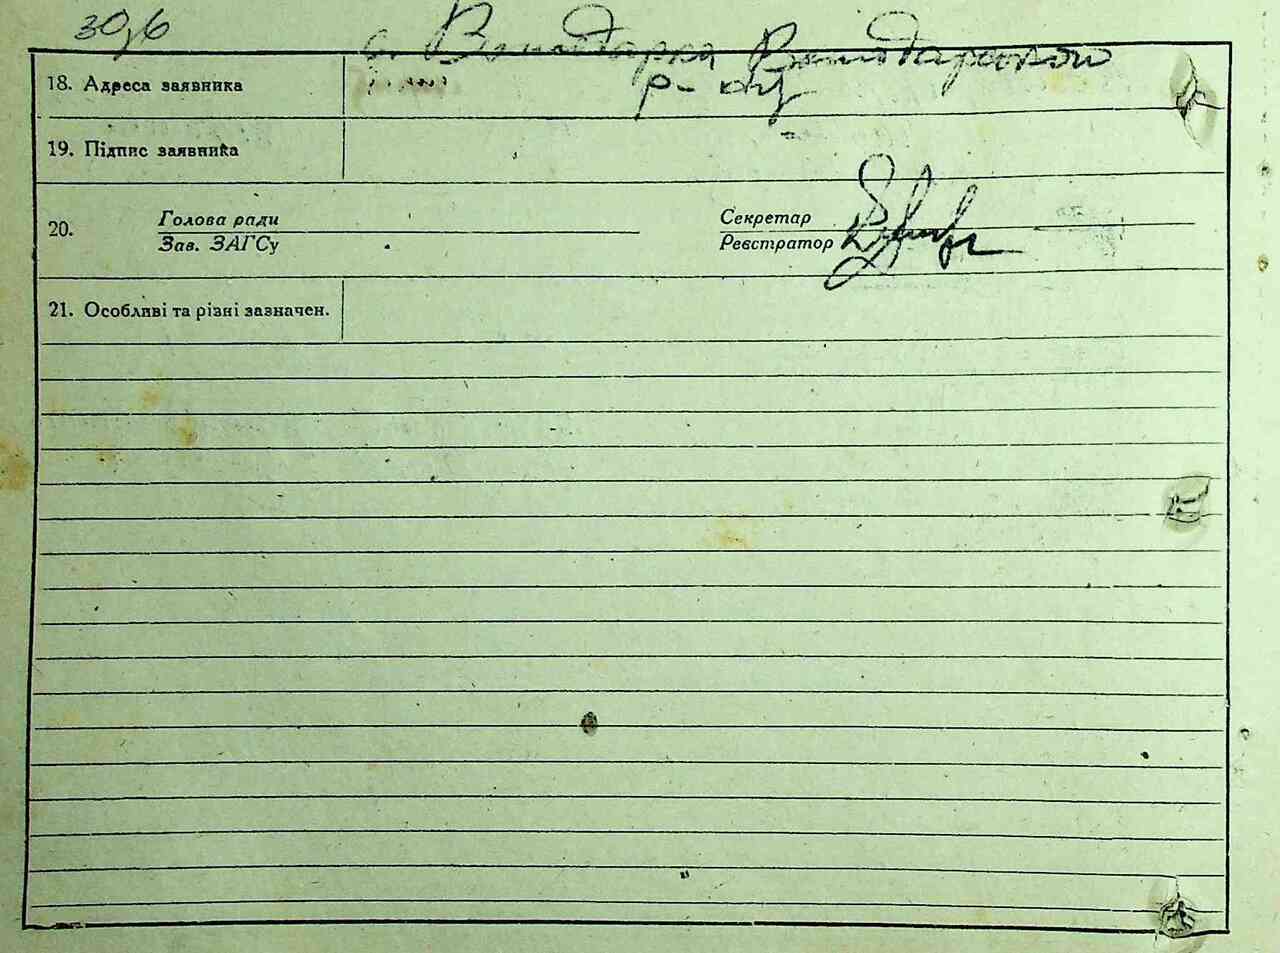 30,6
с. Володарка Володарского
18. Адреса заявника
р-ну
19. Підпис заявника
20. Голова ради Секретар
Зав. ЗАГСу Реєстратор
21. Особливі та різні зазначен.